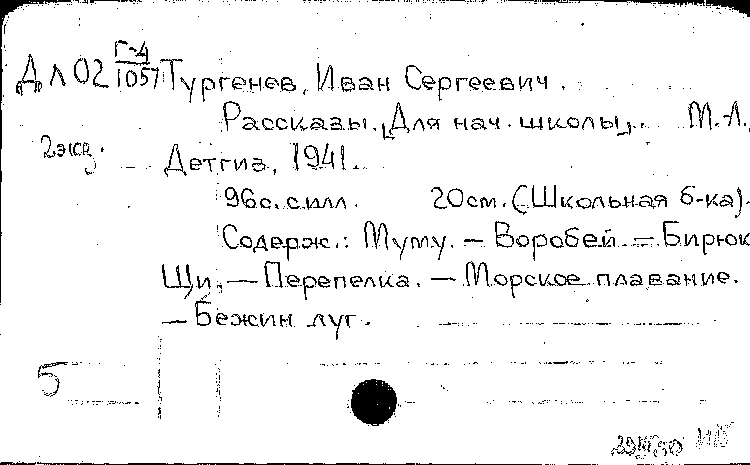 Дл02 Г-4/1057 Тургенев, Иван Сергеевич.
Рассказы. [Для нач. школы]. М.-Л.,
2экз. Детгиз, 1941.
96с. с илл. 20см. (Школьная б-ка).
Содерж.: Муму. — Воробей. — Бирюк
Щи. — Перепелка. — Морское плавание.
— Бежин луг.
5